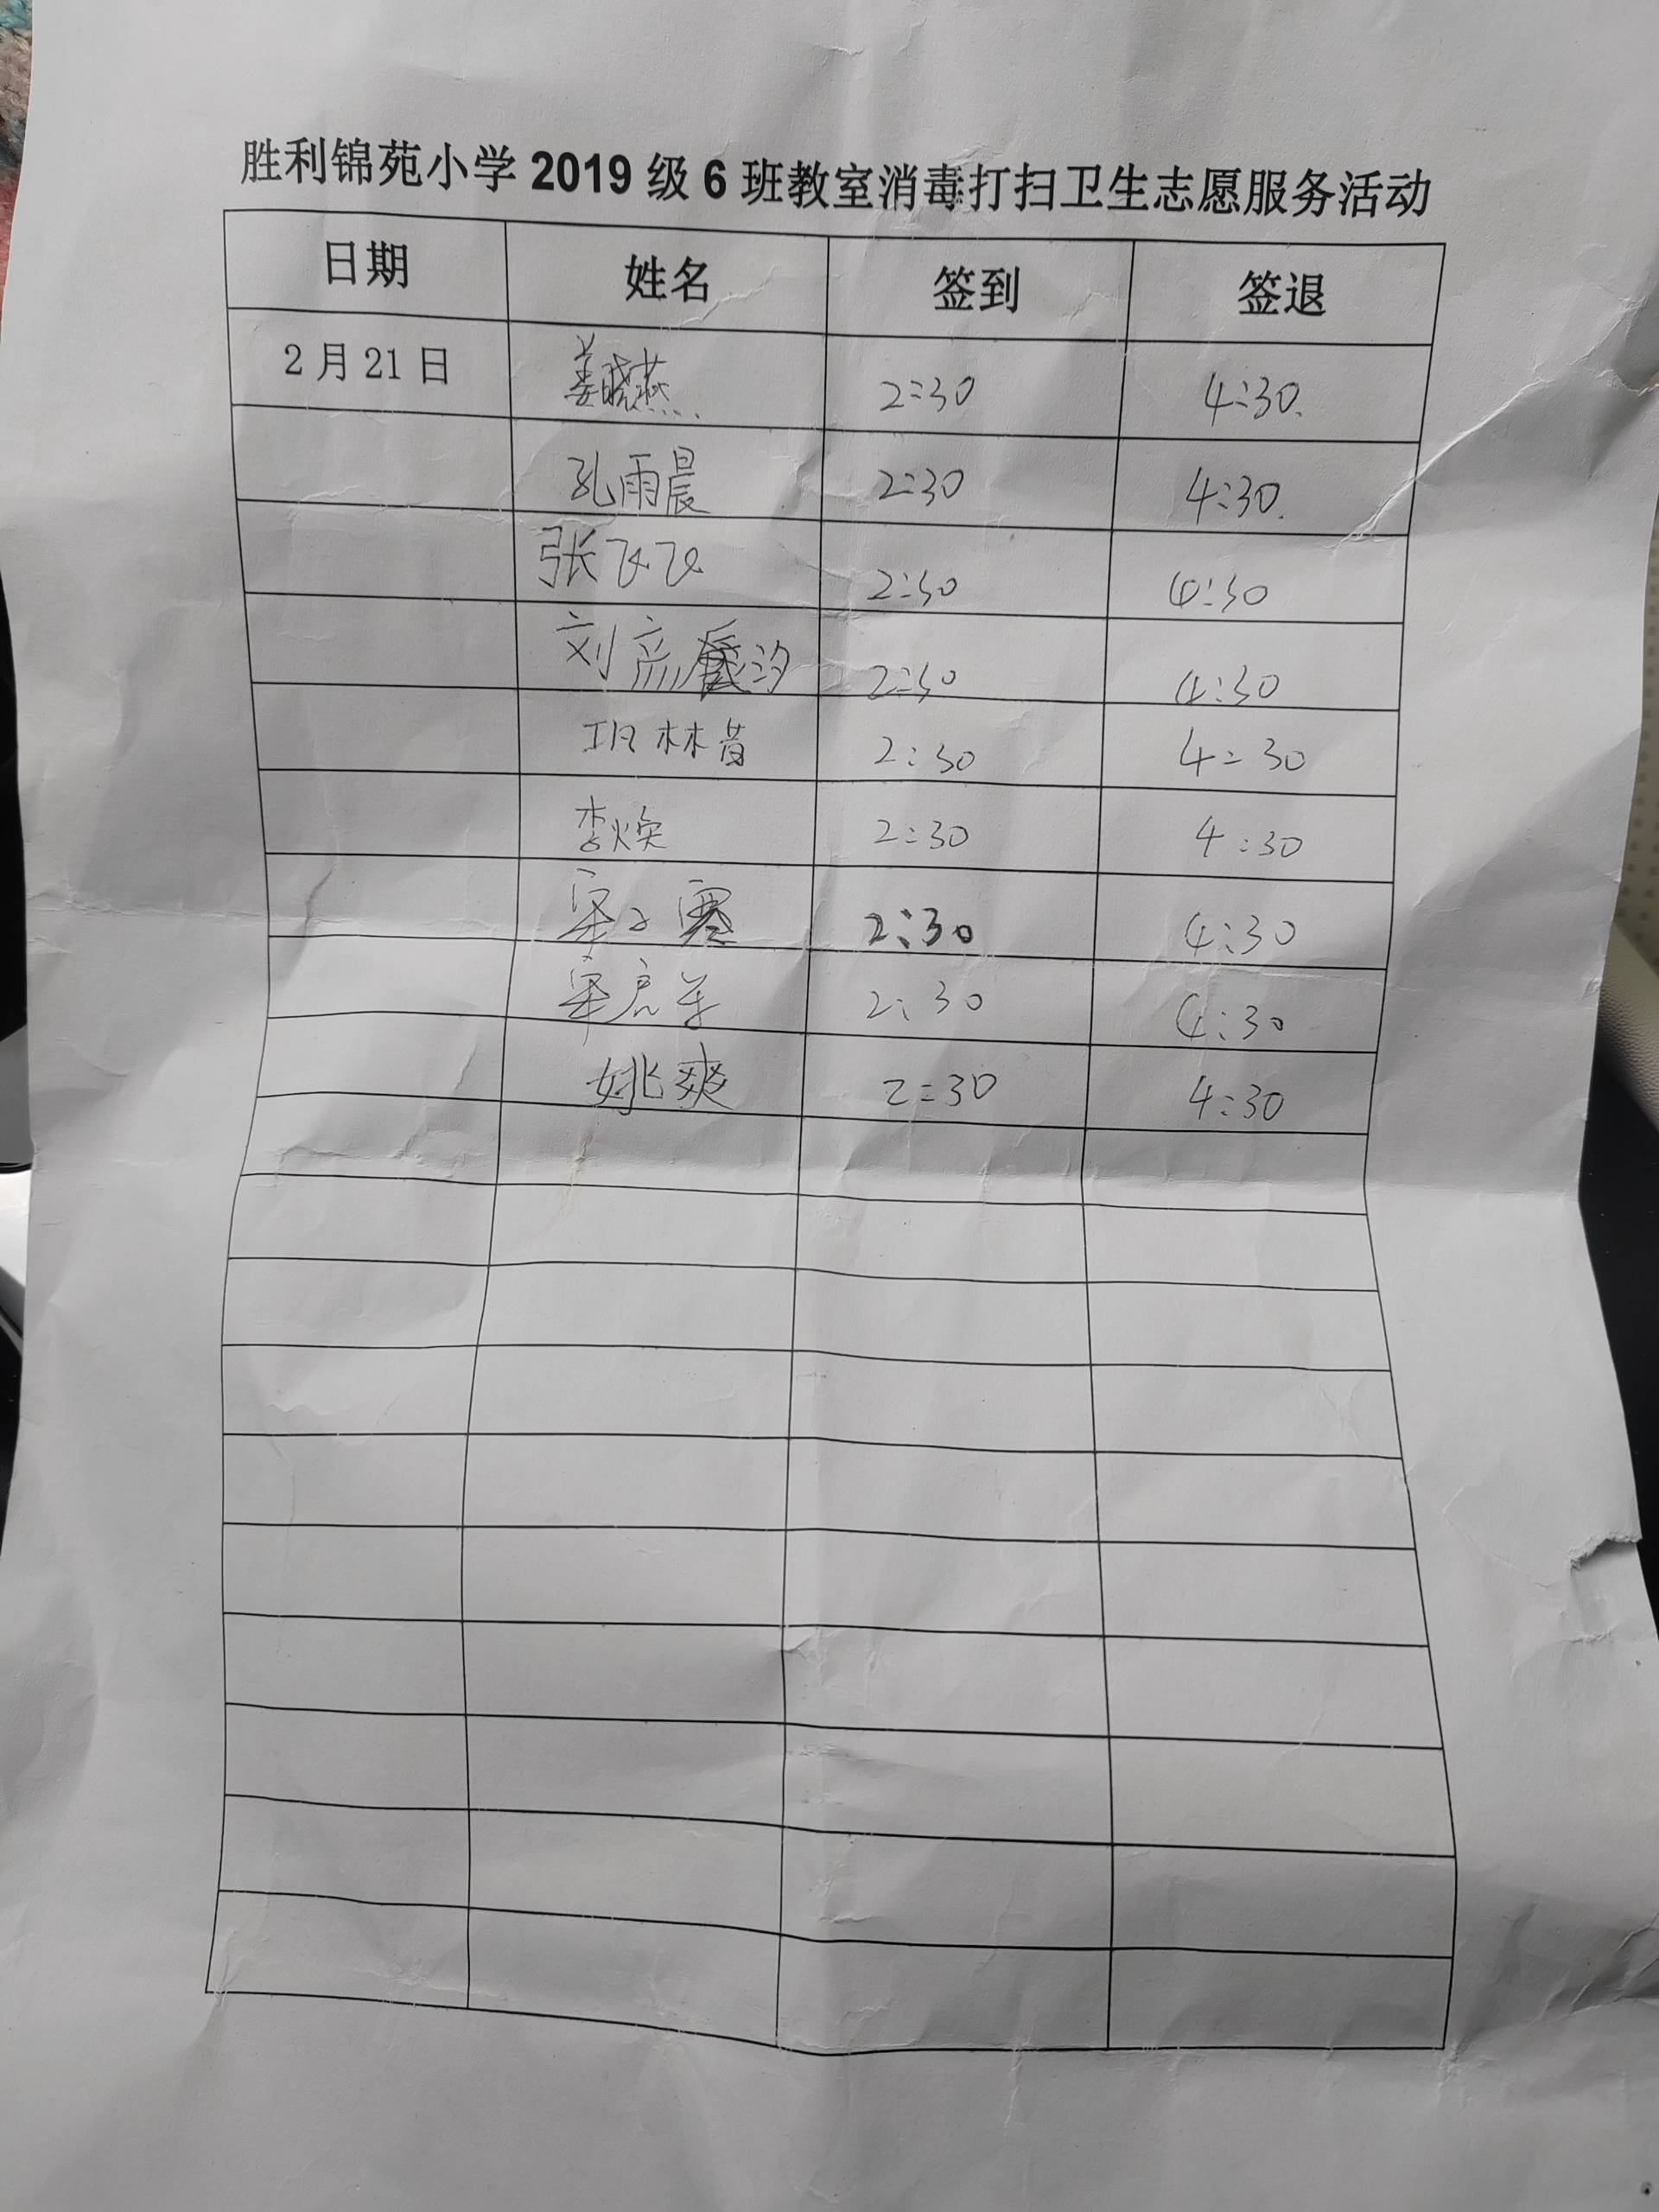 胜利锦苑小学 2019 级 6 班教室消毒打扫卫生志愿服务活动
日期 姓名 签到 签退
2 月 21 日 姜晓燕 2:30 4:30.
孔雨晨 2:30 4:30.
张飞飞 2:30 4:30
刘彦汐 2:30 4:30
巩林昔 2:30 4:30
李焕 2:30 4:30
宋子骞 2:30 4:30
宋彦军 2:30 4:30
姚爽 2:30 4:30